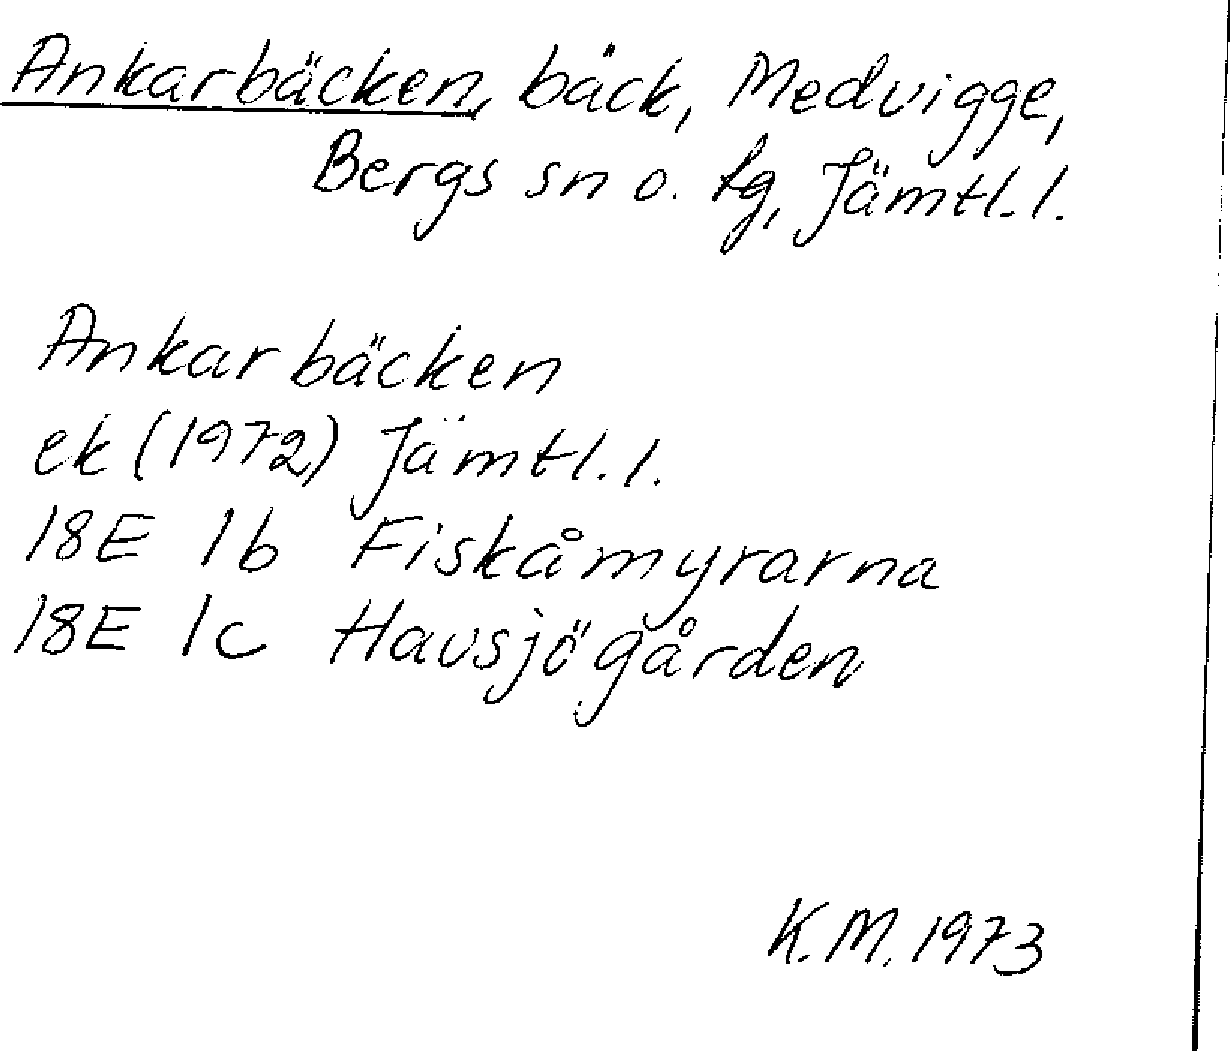 Ankarbäcken, bäck, Medvigge,
Bergs sn o. tg, Jämtl. l.
Ankarbäcken
ek (1972) Jämtl. l.
18E 1b Fiskåmyrarna
18E 1c Havsjögården
K.M. 1973